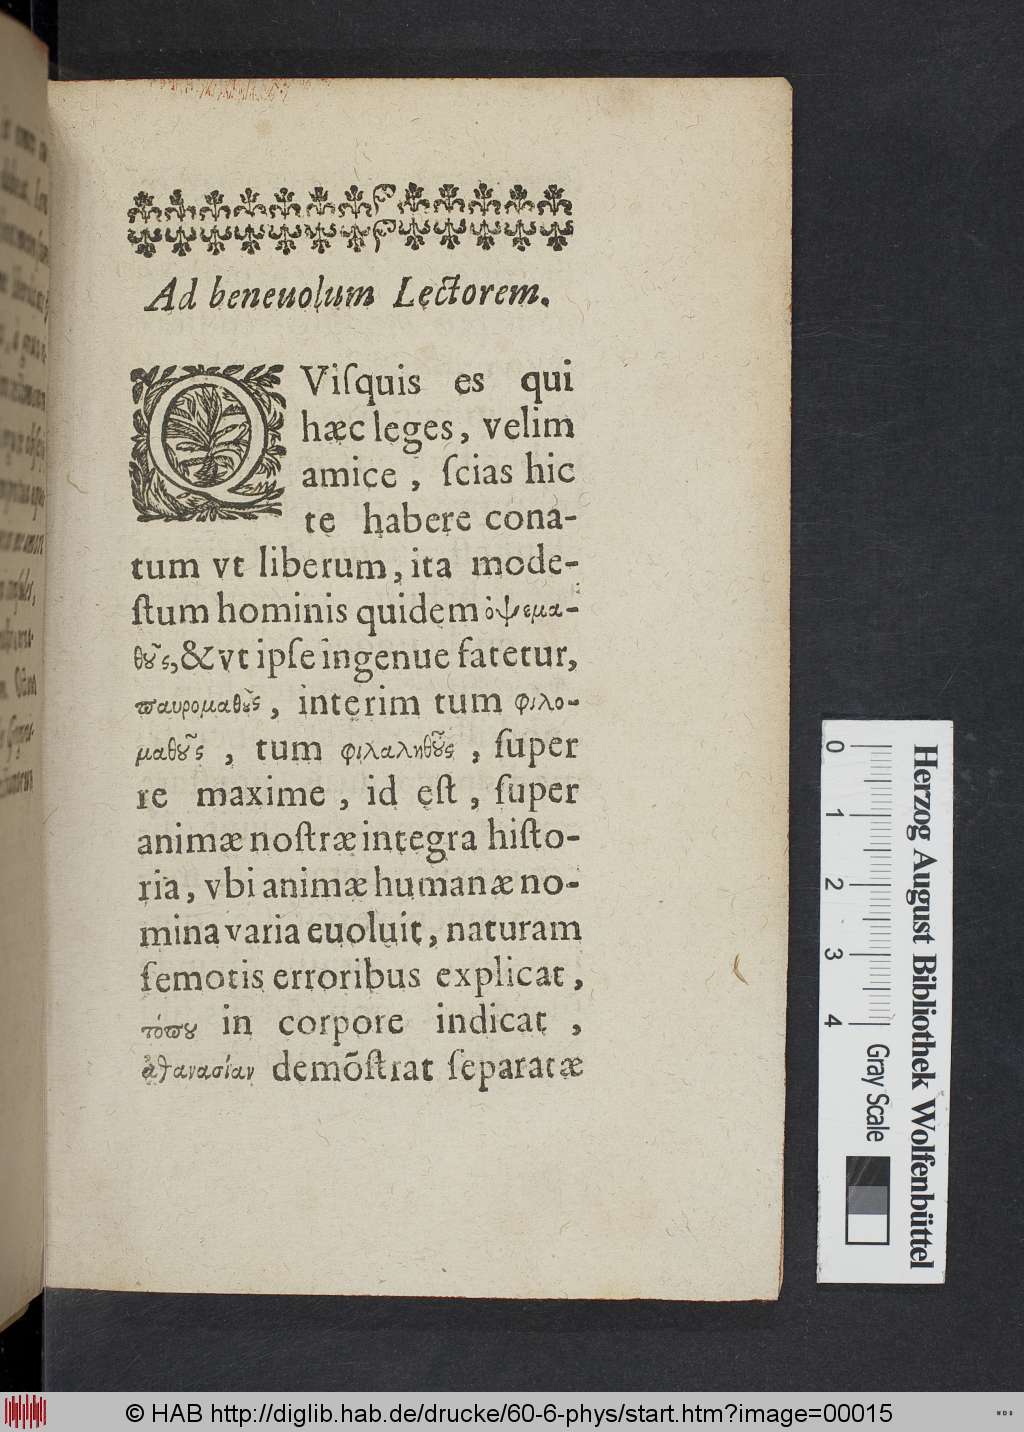 Ad beneuolum Lectorem.
QViſquis es qui
hæc leges, velim
amice, ſcias hic
te habere cona-
tum vt liberum, ita mode-
ſtum hominis quidem ὀψεμα-
θοῦς, & vt ipſe ingenue fatetur,
παυρομαθοῦς, interim tum φιλο-
μαθοῦς, tum φιλαληθοῦς, ſuper
re maxime, id eſt, ſuper
animæ noſtræ integra hiſto-
ria, vbi animæ humanæ no-
mina varia euoluit, naturam
ſemotis erroribus explicat,
τόπου in corpore indicat,
ἀθανασίαν demõſtrat ſeparatæ
Herzog August Bibliothek Wolfenbüttel
0 1 2 3 4
Gray Scale
© HAB http://diglib.hab.de/drucke/60-6-phys/start.htm?image=00015